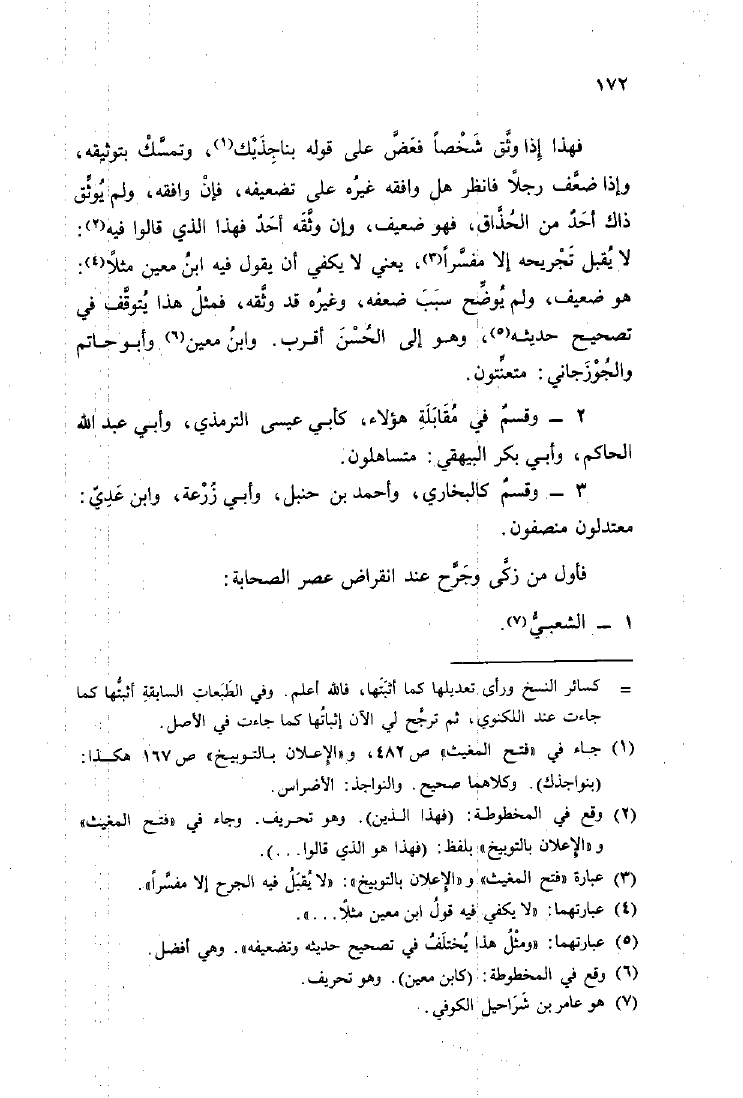 ١٧٢
فهذا إذا وثَّق شَخْصاً فعَضَّ على قوله بناجِذَيْك(١)، وتمسَّكْ بتوثيقه،
وإذا ضعَّف رجلاً فانظر هل وافقه غيرُه على تضعيفه، فإنْ وافقه، ولم يُوثِّق
ذاك أحَدٌ من الحُذَّاق، فهو ضعيف، وإن وثَّقه أحَدٌ فهذا الذي قالوا فيه(٢):
لا يُقبل تَجْريحه إلا مفسَّراً(٣)، يعني لا يكفي أن يقول فيه ابنُ معين مثلاً(٤):
هو ضعيف، ولم يُوضِّح سبَبَ ضعفه، وغيرُه قد وثَّقه، فمثلُ هذا يُتوقَّف في
تصحيح حديثه(٥)، وهو إلى الحُسْنَ أقرب. وابنُ معين(٦) وأبو حاتم
والجُوْزَجاني: متعنِّتون.
٢ ـ وقسمٌ في مُقَابَلَةِ هؤلاء، كأبي عيسى الترمذي، وأبي عبد الله
الحاكم، وأبي بكر البيهقي: متساهلون.
٣ ـ وقسمٌ كالبخاري، وأحمد بن حنبل، وأبي زُرْعة، وابن عَدِيّ:
معتدلون منصفون.
فأول من زكَّى وجَرَّح عند انقراض عصر الصحابة:
١ ـ الشعبيُّ(٧).
= كسائر النسخ ورأى تعديلها كما أثبَتَها، فالله أعلم. وفي الطَبَعاتِ السابقةِ أثبتُّها كما
جاءت عند اللكنوي، ثم ترجَّح لي الآن إثباتُها كما جاءت في الأصل.
(١) جاء في «فتح المغيث» ص ٤٨٢، و«الإعلان بالتوبيخ» ص ١٦٧ هكذا:
(بنواجذك). وكلاهما صحيح. والنواجذ: الأضراس.
(٢) وقع في المخطوطة: (فهذا الذين). وهو تحريف. وجاء في «فتح المغيث»
و«الإعلان بالتوبيخ» بلفظ: (فهذا هو الذي قالوا...).
(٣) عبارة «فتح المغيث» و«الإعلان بالتوبيخ»: «لا يُقبَلُ فيه الجرح إلا مفسَّراً».
(٤) عبارتهما: «لا يكفي فيه قولُ ابن معين مثلاً...».
(٥) عبارتهما: «ومثْلُ هذا يُختلَفُ في تصحيح حديثه وتضعيفه». وهي أفضل.
(٦) وقع في المخطوطة: (كابن معين). وهو تحريف.
(٧) هو عامر بن شَرَاحيل الكوفي.